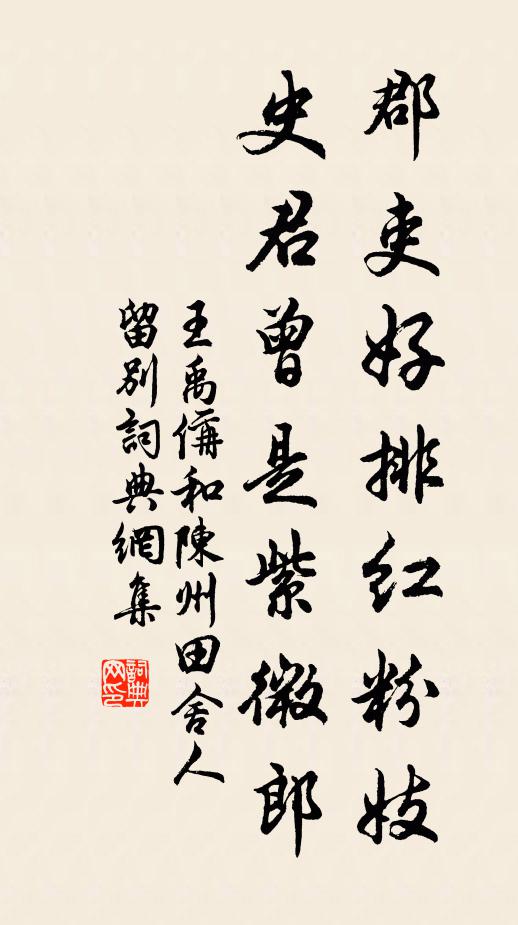 郡吏好排红粉妓
史君曾是紫微郎
王禹偁和陳州田舍人
留别詞典網集
詞典
网印